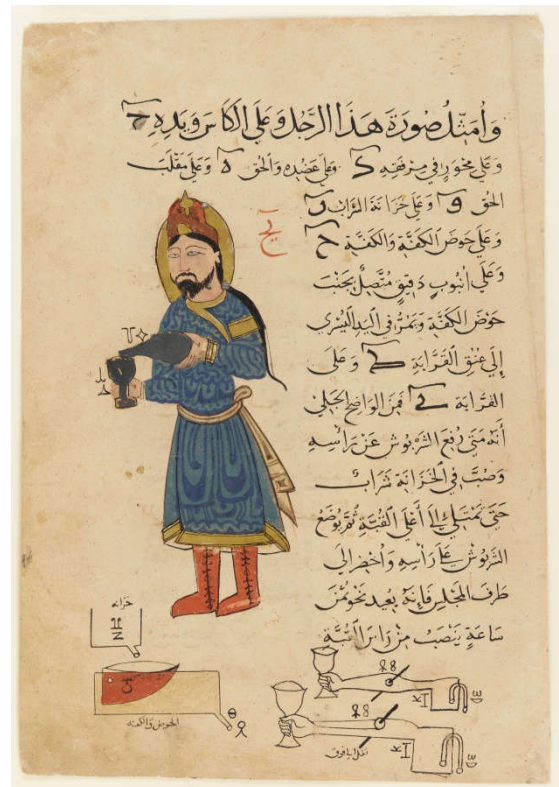 وَأُمَثِّلُ صُورَةَ هَذَا الرَّجُلِ وَعَلَى الكَاسِ وَيَدِهِ ح
وَعَلَى مِحْوَرٍ فِي مِرْفَقِهِ وَعَلَى عَضُدِهِ وَالحُقِّ ه وَعَلَى مَقْلَبِ
الحُقِّ و وَعَلَى خِزَانَةِ الشَّرَابِ
وَعَلَى حَوْضِ الكَفَّةِ وَالكَفَّةِ ح
وَعَلَى أُنْبُوبٍ دَقِيقٍ مُتَّصِلٍ بِجَنْبِ
حَوْضِ الكَفَّةِ وَيَمُرُّ فِي اليَدِ اليُسْرَى
إِلَى عُنُقِ القَرَّابَةِ وَعَلَى
القَرَّابَةِ فَمِنَ الوَاضِحِ الجَلِيِّ
أَنَّهُ مَتَى رُفِعَ الشَّرْبُوشُ عَنْ رَأْسِهِ
وَصُبَّ فِي الخِزَانَةِ شَرَابٌ
حَتَّى تَمْتَلِئَ إِلَى أَعْلَى القُبَّةِ ثُمَّ يُوضَعُ
الشَّرْبُوشُ عَلَى رَأْسِهِ وَأُحْضِرَ إِلَى
طَرَفِ المَجْلِسِ فَإِنَّهُ بُعَيْدَ نَحْوِ ثُمْنِ
سَاعَةٍ يَنْصَبُّ مِنْ رَأْسِ القُبَّةِ
خزانه
الحوض والكفه